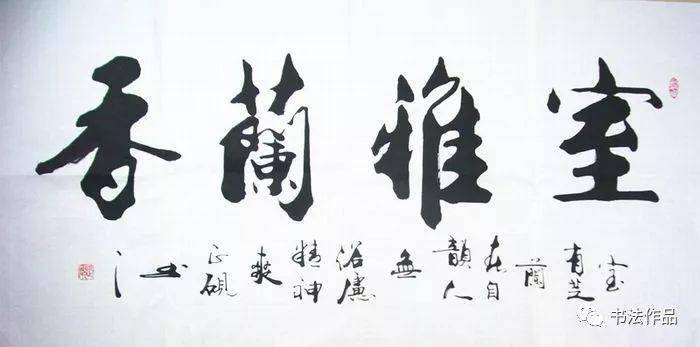 室雅蘭香
室有芝蘭春自韻人無俗慮精神爽正硯书
书法作品